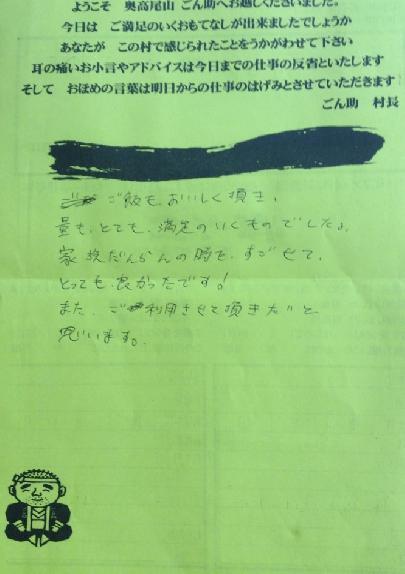 ようこそ 奥高尾山 ごん助へお越しくださいました。
今日は ご満足のいくおもてなしが出来ましたでしょうか
あなたが この村で感じられたことをうかがわせて下さい
耳の痛いお小言やアドバイスは今日までの仕事の反省といたします
そして おほめの言葉は明日からの仕事のはげみとさせていただきます
ごん助 村長
ご飯も、おいしく頂き、
量も、とても、満足のいくものでした。
家族だんらんの時を、すごせて、
とっても、良かったです!
また、ご利用させて頂きたいと
思います。